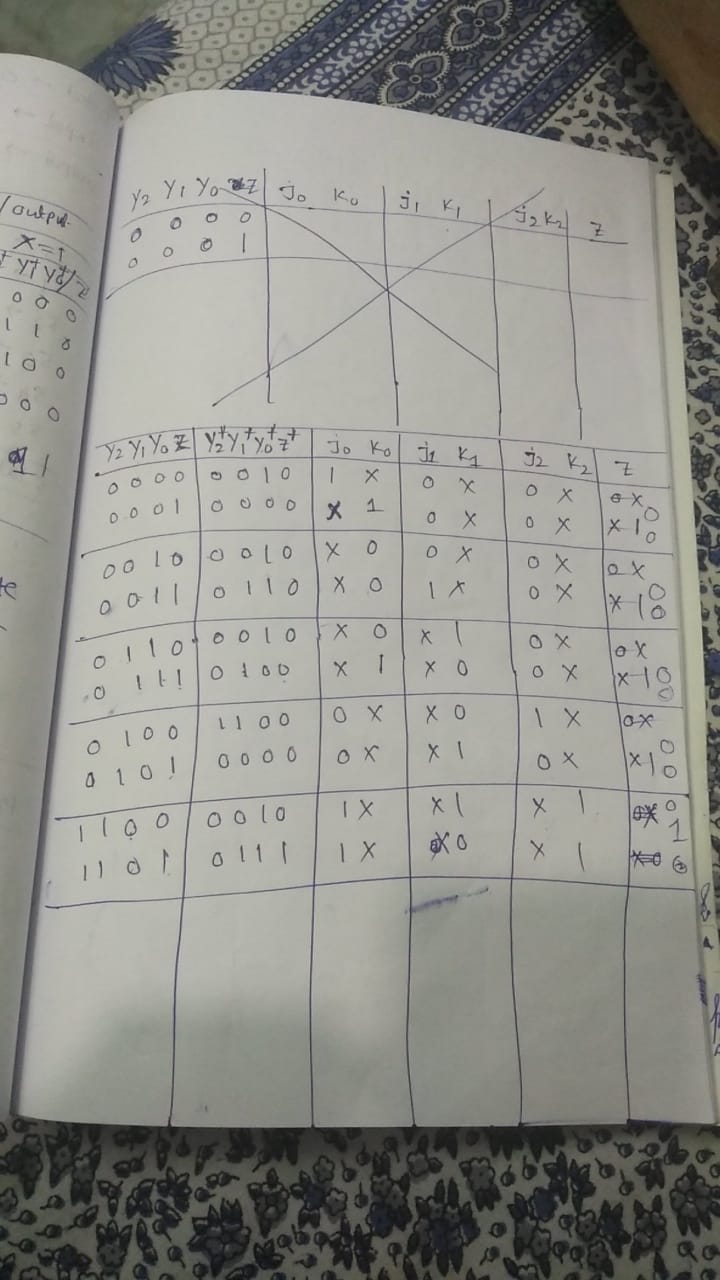 /output.
x=1
Y1+ Y0+/Z
0 0 0
1 1 0
1 0 0
0 0 0
1
Y2 Y1 Y0 Z j0 K0 j1 K1 j2 K2 Z
0 0 0 0
0 0 0 1
Y2 Y1 Y0 Z Y2+ Y1+ Y0+ Z+ j0 K0 j1 K1 j2 K2 Z
0 0 0 0 0 0 1 0 1 X 0 X 0 X 0 X 0
0 0 0 1 0 0 0 0 X 1 0 X 0 X X 1 0
0 0 1 0 0 0 1 0 X 0 0 X 0 X 0 X 0
0 0 1 1 0 1 1 0 X 0 1 X 0 X X 1 0
0 1 1 0 0 0 1 0 X 0 X 1 0 X 0 X 0
0 1 1 1 0 1 0 0 X 1 X 0 0 X X 1 0
0 1 0 0 1 1 0 0 0 X X 0 1 X 0 X 0
0 1 0 1 0 0 0 0 0 X X 1 0 X X 1 0
1 1 0 0 0 0 1 0 1 X X 1 X 1 0
1 1 0 1 0 1 1 1 1 X X 0 X 1 1